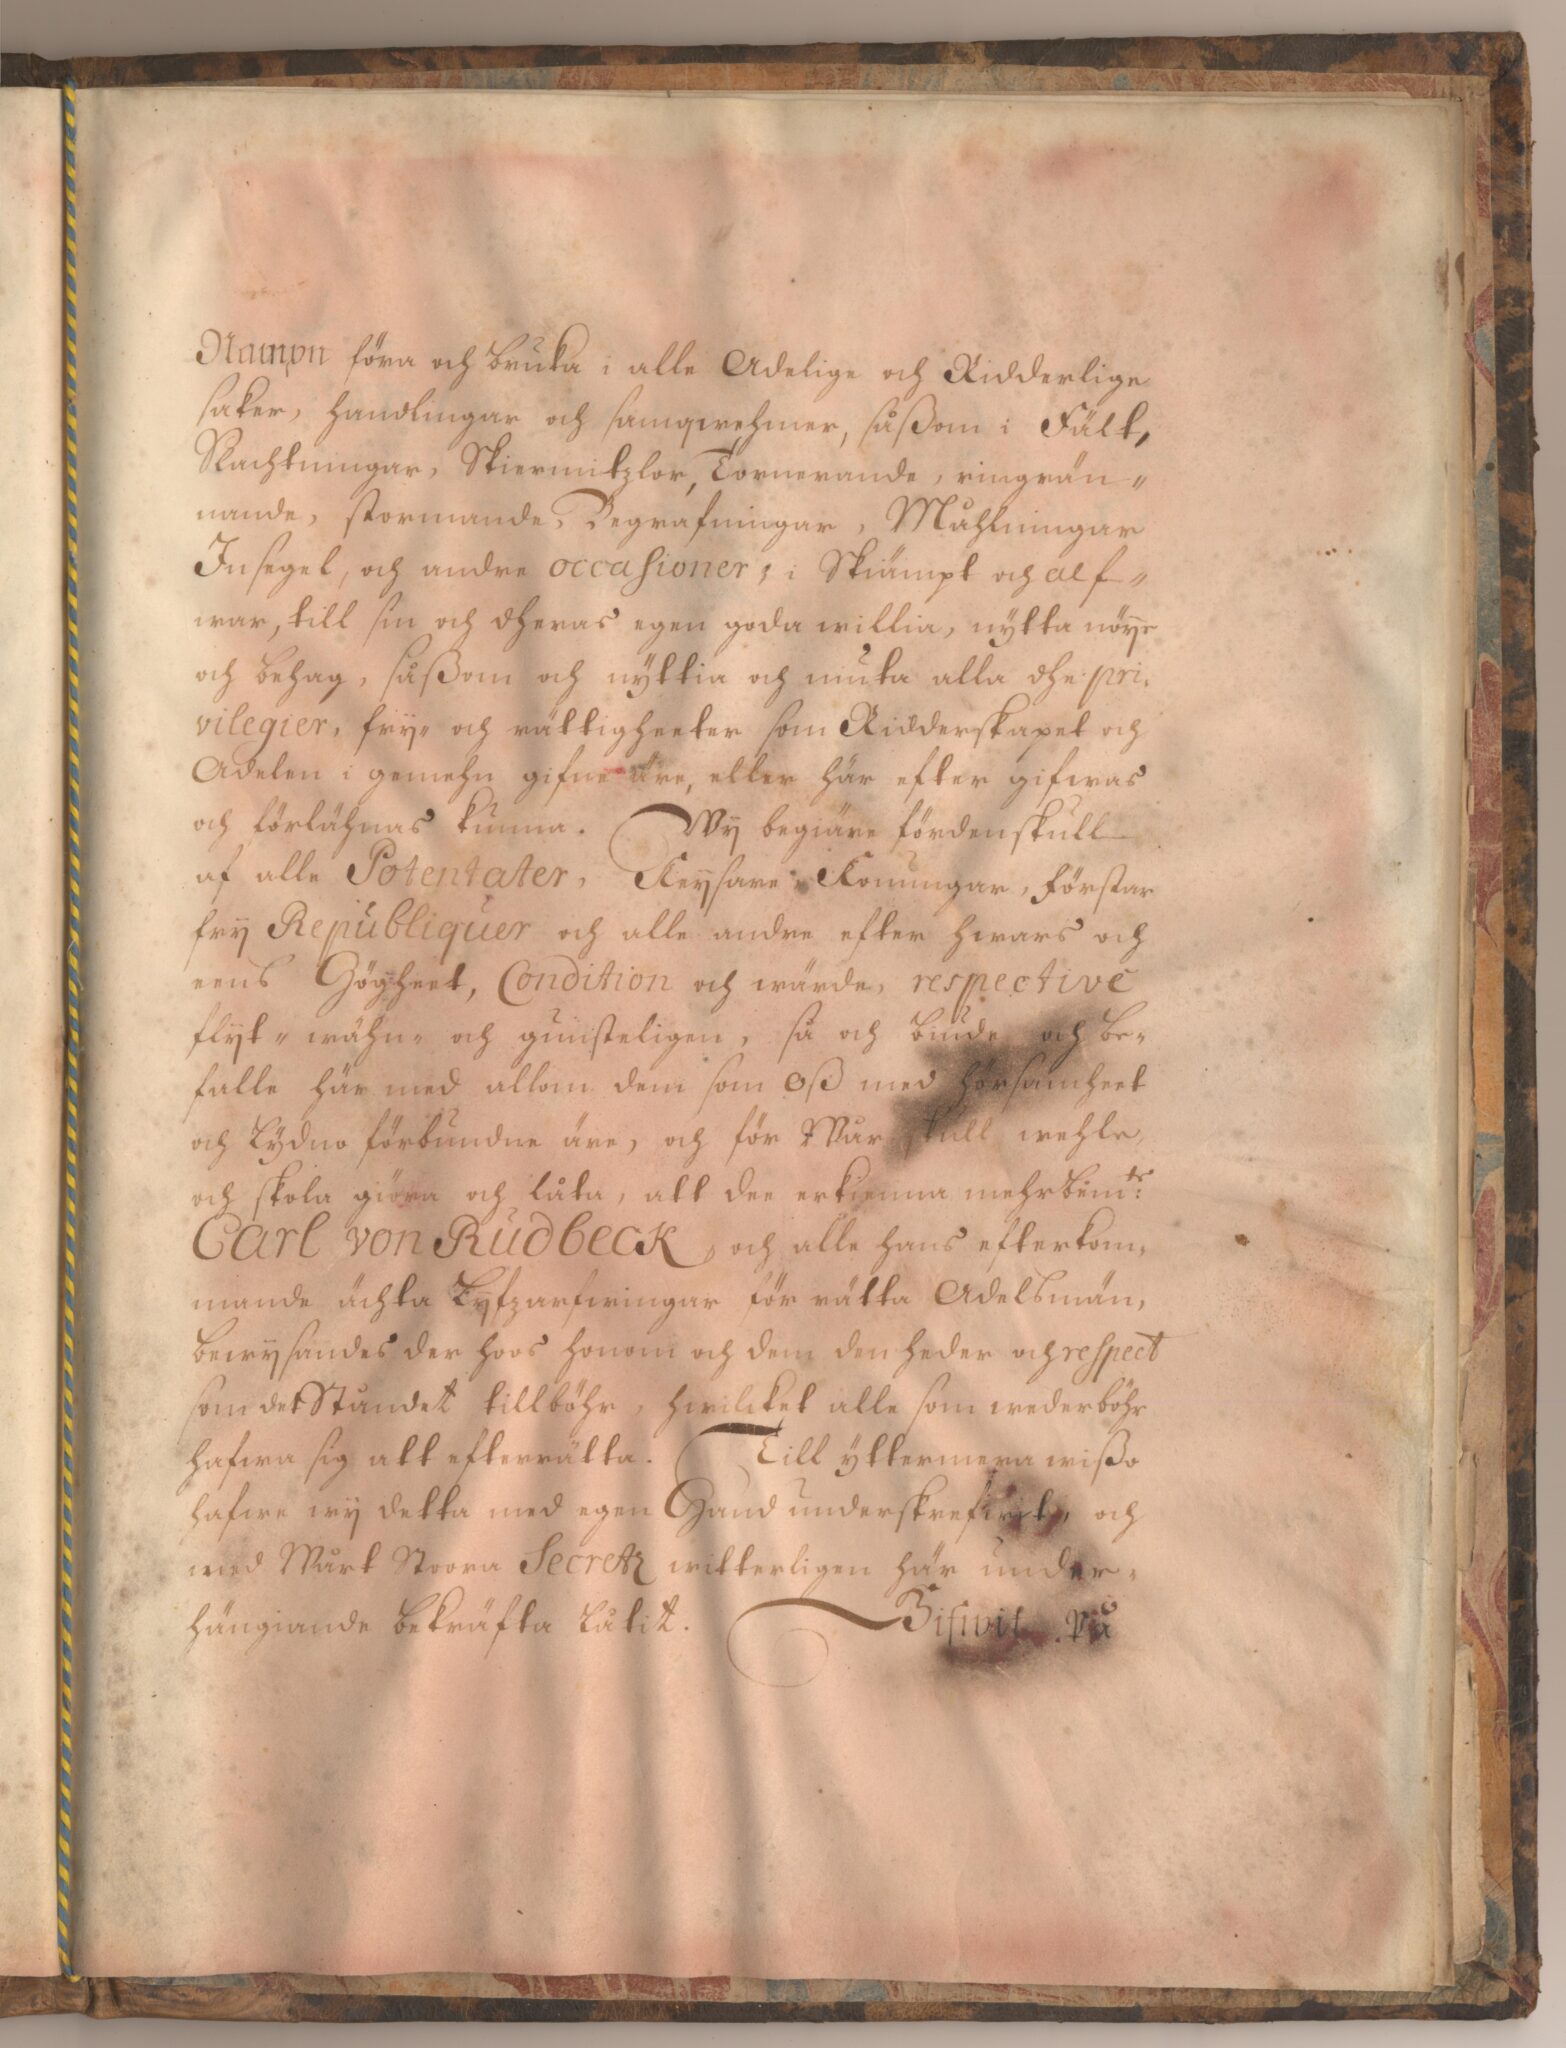 Nampn föra och bruka i alle Adelige och Ridderlige
saker, handlingar och samqwehmer, såßom i Fält,
Slachtningar, Skiermitzlor, Tornerande, ringrän„
nande, stormande, Begrafningar, Måhlningar
Insegel, och andre occasioner, i Skiämpt och alf„
war, till sin och dheras egen goda willia, nÿtta nöye
och behag, såßom och nÿttia och niuta alla dhe pri„
vilegier, fry„ och rättigheeter som Ridderskapet och
Adelen i gemehn gifne äre, eller här efter gifwas
och förlähnas kunna. Wÿ begiäre fördenskull
af alle Potentater, Keÿsare, Konungar, Förstar
frÿ Republiquer och alle andre efter hwars och
eens Högheet, Condition och wärde, respective
flÿt„ wähn„ och gunsteligen, så och biude och be„
falle här med allom dem som Oß med hörsamheet
och Lÿdno förbundne äre, och för Wår skull wehle,
och skola giöra och låta, att dee erkienna mehrbemte:
Carl von Rudbeck, och alle hans efterkom„
mande ächta Lÿfzarfwingar för rätta Adelsmän,
bewÿsandes der hoos honom och dem den heder och respect
som det Ståndet tillböhr, hwilcket alle som wederböhr
hafwa sig att efterrätta. Till ÿttermera wißo
hafwe wÿ detta med egen Hand underskrefwit, och
med Wårt Stoora Secretz witterligen här under„
hängiande bekräfta Låtit. Gifwit På